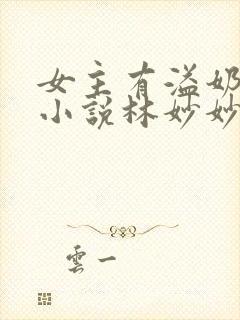 女主有溢奶
小说林妙妙
雲一